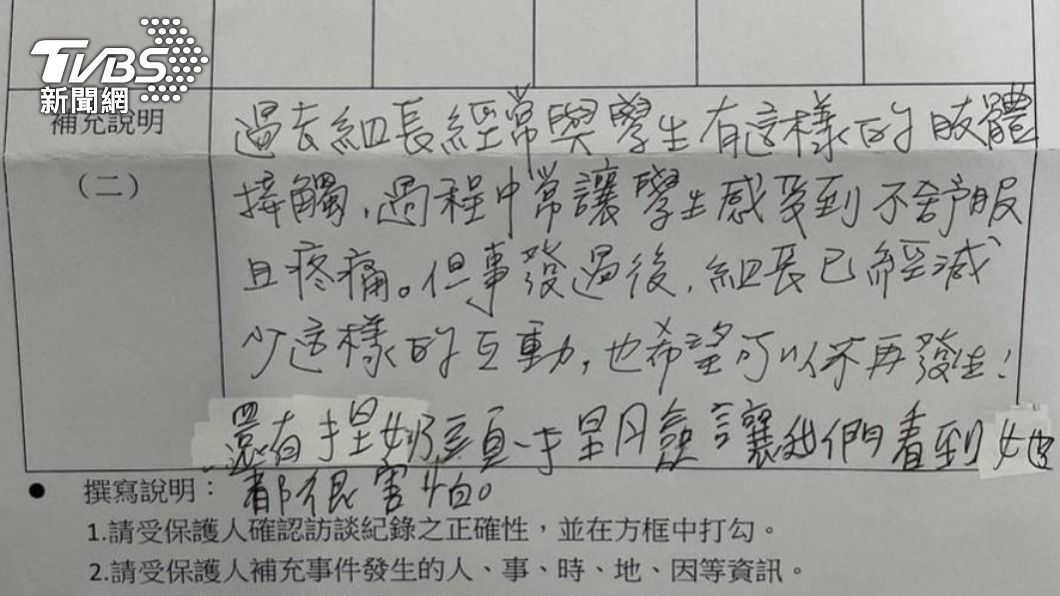 TVBS
新聞網
補充說明
(二)
過去組長經常與學生有這樣的肢體
接觸,過程中常讓學生感受到不舒服
且疼痛。但事發過後,組長已經減
少這樣的互動,也希望可以不再發生!
還有捏奶頭、捏臉讓我們看到她
都很害怕。
● 撰寫說明:
1.請受保護人確認訪談紀錄之正確性,並在方框中打勾。
2.請受保護人補充事件發生的人、事、時、地、因等資訊。